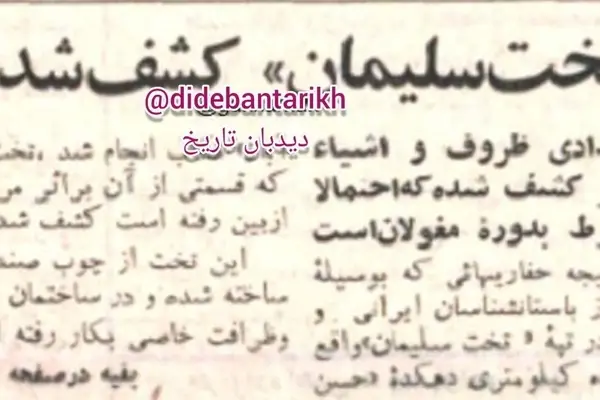 خت‌سلیمان» کشف‌شد
@didebantarikh
دیدبان تاریخ
دادی ظروف و اشیاء
کشف شده که احتمالا
ط بدورهٔ مغولان است
یجه حفاریهائی که بوسیلهٔ
از باستانشناسان ایرانی و
در تپهٔ «تخت سلیمان» واقع
کیلومتری دهکدهٔ «حسن
انجام شد ، تخت
که قسمتی از آن براثر مر
ازبین رفته است کشف شد
این تخت از چوب صند
ساخته شده و در ساختمان
وظرافت خاصی بکار رفته
بقیه درصفحه